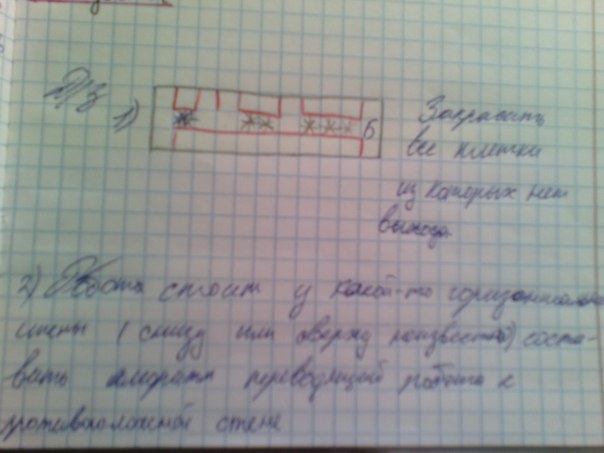 Д/З
1)
Б
Закрасить
все клетки
из которых нет
выхода
2) Робот стоит у какой-то горизонтальной
стены (снизу или сверху неизвестно) соста-
вить алгоритм переводящий робота к
противоположной стене